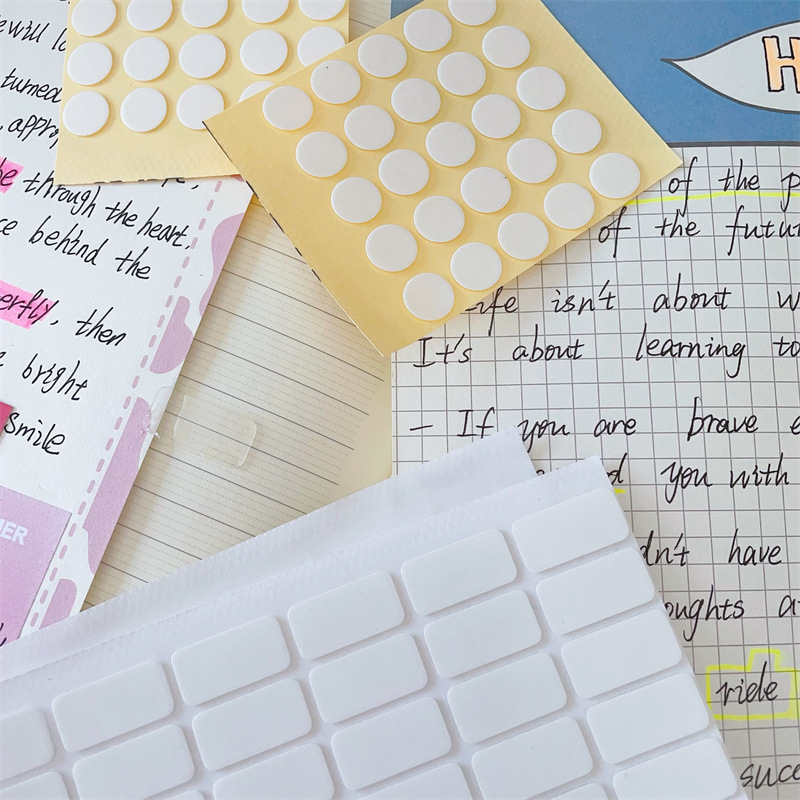 will
turned
through the heart,
behind the
then
bright
smile
H
of the p
of the futur
Life isn't about w
It's about learning to
— If you are brave e
you with
dn't have
oughts a
ride
succ